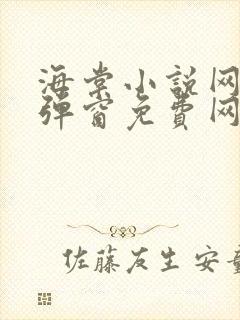 海棠小說网
彈窗免費网
佐藤友生 安